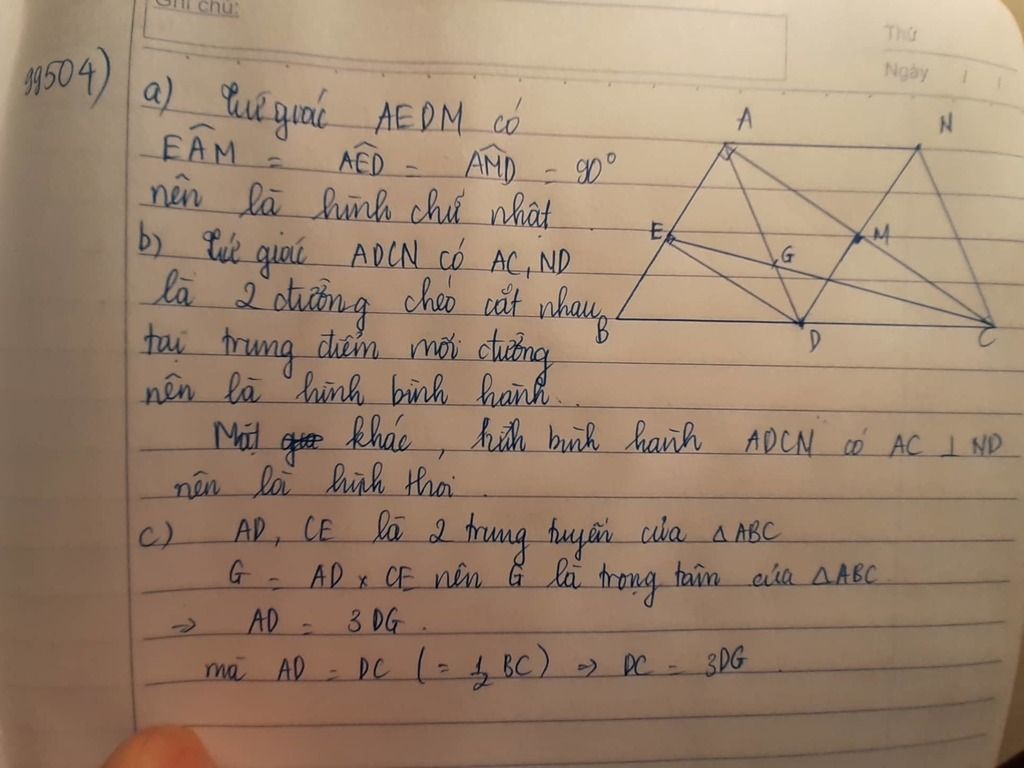 Ghi chú:
Thứ
Ngày / /
99504)
a) Tứ giác AEDM có
EÂM = AÊD = AM̂D = 90°
nên là hình chữ nhật
b) Tứ giác ADCN có AC, ND
là 2 đường chéo cắt nhau
tại trung điểm mỗi đường
nên là hình bình hành.
Mặt khác, hình bình hành ADCN có AC ⊥ ND
nên là hình thoi.
c) AD, CE là 2 trung tuyến của △ABC
G = AD × CE nên G là trọng tâm của △ABC
⇒ AD = 3DG.
mà AD = DC (= 1/2 BC) ⇒ DC = 3DG
A
N
E
M
G
B
D
C